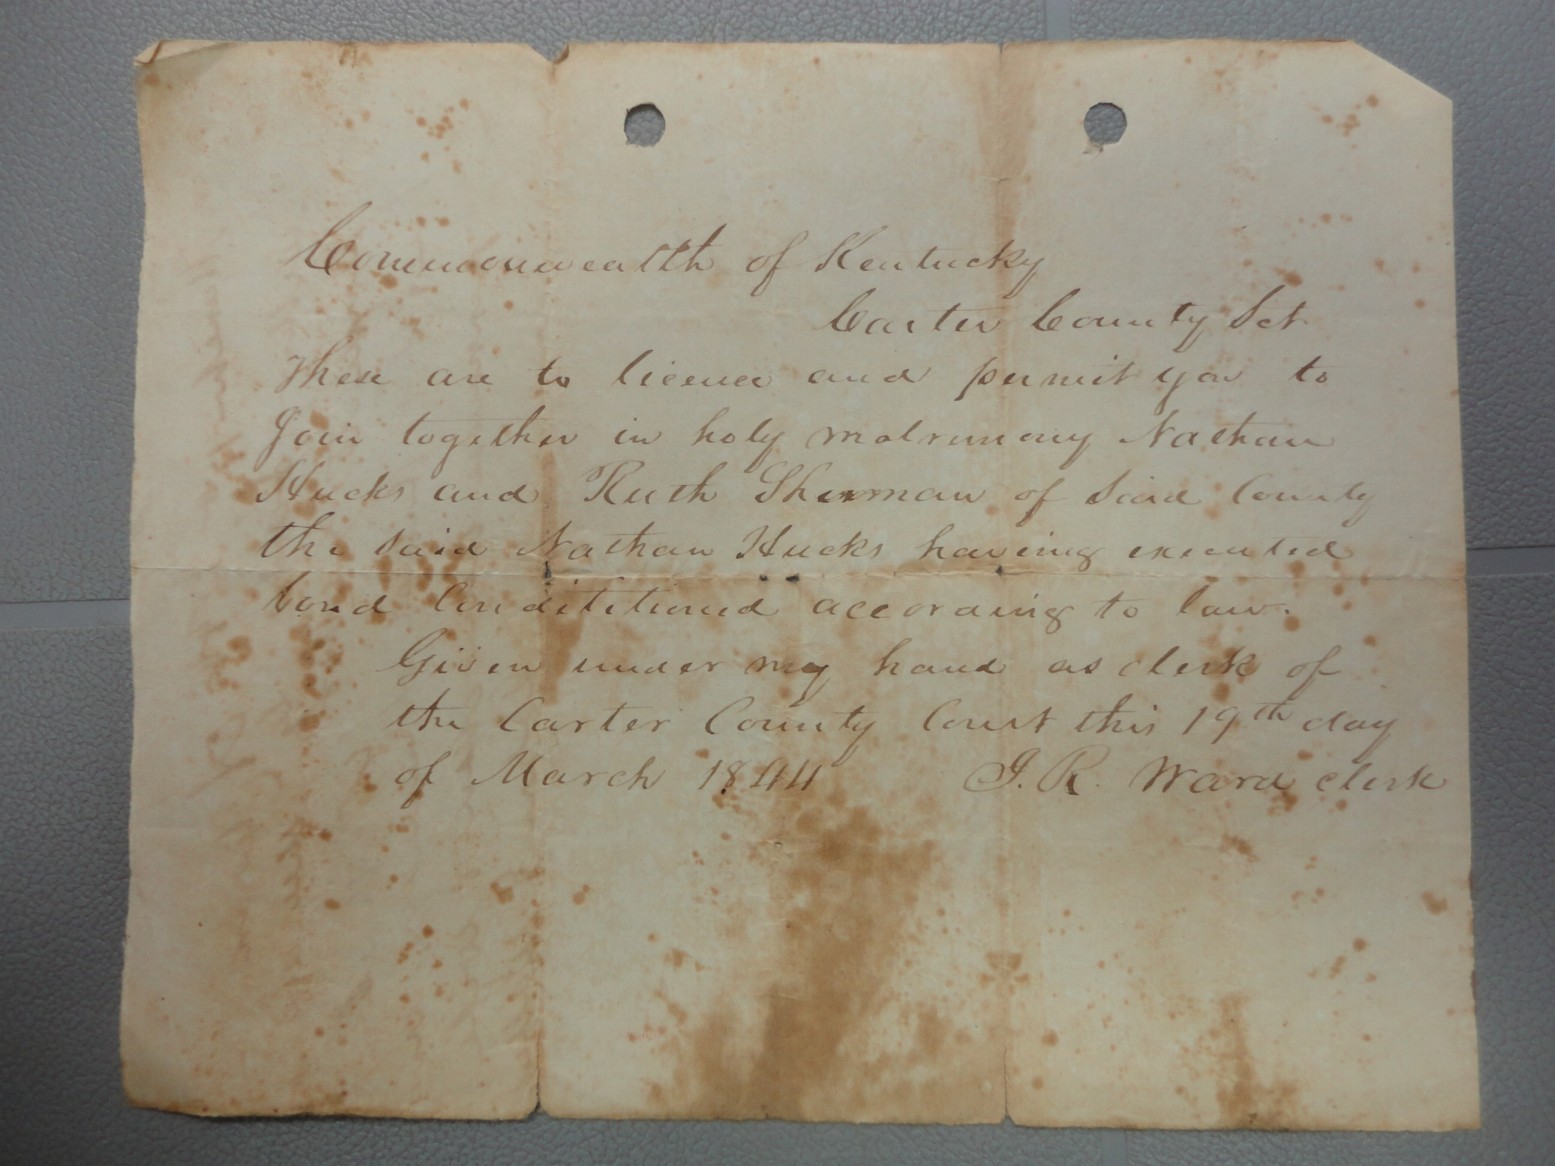 Commonwealth of Kentucky
Carter County Sct
These are to licence and permit you to
Join together in holy matrimony Nathan
Hucks and Ruth Sherman of Said County
the said Nathan Hucks having executed
bond Condititioned according to law.
Given under my hand as clerk of
the Carter County Court this 19th day
of March 1844 J. R. Ward clerk